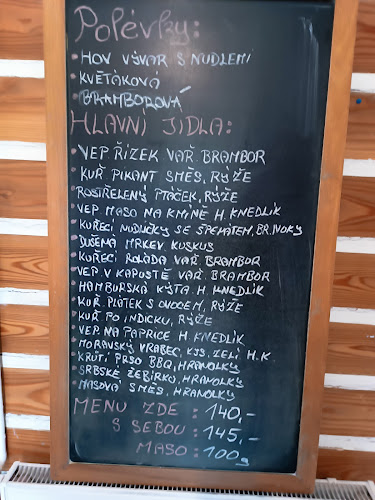 Polévky:
HOV VÝVAR S NUDLEMI
KVĚTÁKOVÁ
BRAMBOROVÁ
HLAVNÍ JÍDLA:
VEP. ŘÍZEK VAŘ. BRAMBOR
KUŘ. PIKANT SMĚS, RÝŽE
ROSTŘELENÝ PTÁČEK, RÝŽE
VEP. MASO NA KMÍNĚ H. KNEDLÍK
KUŘECÍ NUDLIČKY SE ŠPENÁTEM, BR.
DUŠENÁ MRKEV. KUSKUS
KUŘECÍ ROLÁDA VAŘ. BRAMBOR
VEP. V KAPUSTĚ VAŘ. BRAMBOR
HAMBURSKÁ KÝTA. H. KNEDLÍK
KUŘ. PLÁTEK S OVOCEM, RÝŽE
KUŘ. PO INDICKU, RÝŽE
VEP. NA PAPRICE H. KNEDLÍK
MORAVSKÝ VRABEC, KYS. ZELÍ H.K.
KRŮTÍ PRSO BBQ, HRANOLKY
SRBSKÉ ŽEBÍRKO, HRANOLKY
MASOVÁ SMĚS, HRANOLKY
MENU ZDE : 140,-
S SEBOU : 145,-
MASO : 100g